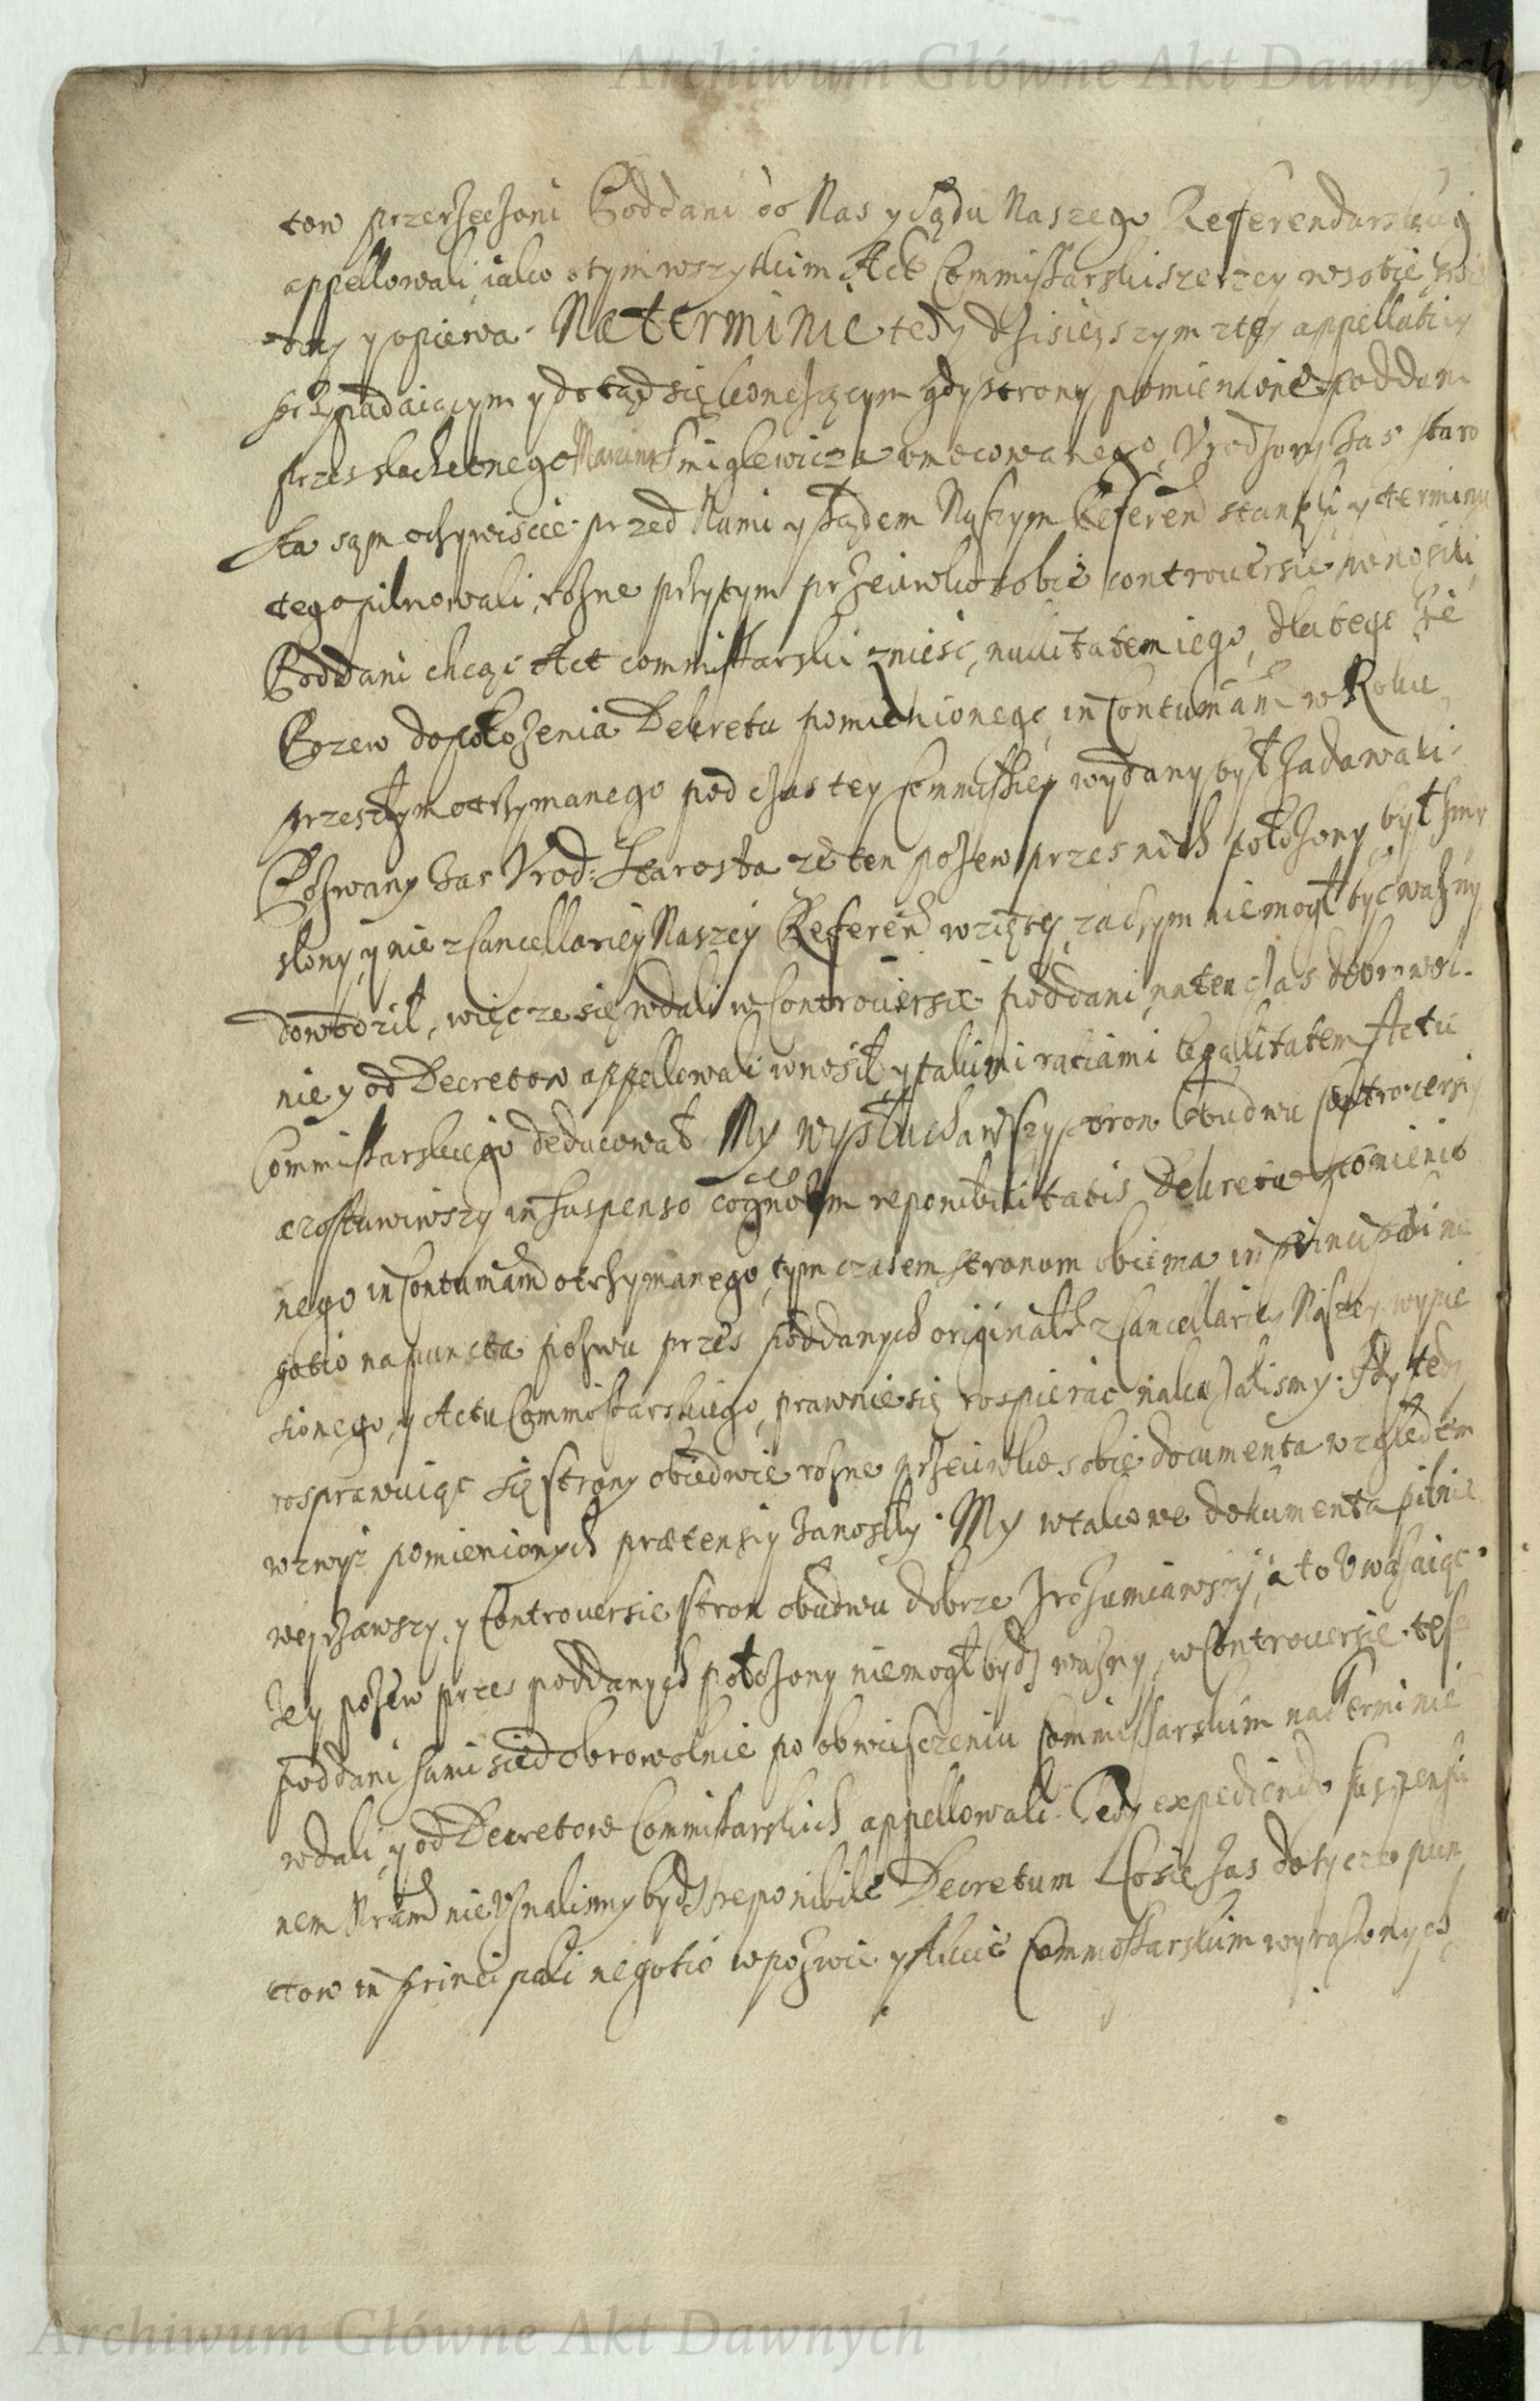 Archiwum Główne Akt Dawnych
tow przerzeczoni Poddani do Nas y Sądu Naszego Referendarskiego
appellowali, iako o tym wszytkim Act Commissarski szerzey w sobie
y opiewa. Na terminie tedy dzisieyszym z tey appellatiey
przypadaiącym y dotąd się kończącym gdy strony pomienione Poddani
przes slachetnego Marcina Smiglewicza umocowanego, Vrodzony zas Staro
sta sąm oczywiscie przed Nami y Sądem Naszym Referen stanęli y terminu
tego pilnowali, rozne przytym przeciwko sobie controuersie wnosili
Poddani chcąc Act commissarski zniesc, nullitatem iego, dla tego że
Pozew do połozenia Dekretu pomienionego in Contumam w Roku
przeszłym otrzymanego pod czas tey Commissiey wydany był zadawali.
Pozwany zas Vrod: Starosta ze ten pozew przes nich połozony był zmy
slony, y nie z Cancellariey Naszey Referen wzięty, zaczym nie mogł byc wazny
dowodził, więc ze się wdali w Controuersie poddani, na ten czas dobrowol-
nie y od Decretow appellowali wnosił, y takimi ratiami legallitatem Actu
Commissarskiego deducował. My wysłuchawszy stron obudwu controuersiy
zostawiwszy in suspenso cognoem reponibilitatis Dekretu pomienio
nego in Contumam otrzymanego, tym czasem stronom obiema in principali ne
gotio na puncta pozwu przes poddanych originalr z Cancellariey Naszey wynie
sionego, y Actu Commissarskiego, prawnie się rospierac nakazalismy. Gdy tedy
rosprawuiąc się strony obiedwie rozne przeciwko sobie documenta względem
wzwyż pomienionych prætensiy zanosiły. My w takowe dokumenta pilnie
weyzrzawszy, y Controuersie stron obudwu dobrze zrozumiawszy, a to Uwazaiąc.
Zey pozew przes poddanych połozony nie mogł bydz wazny, w Controuersie tesz
poddani sami się dobrowolnie po obwiesczeniu Commissarskim na Terminie
wdali, y od Decretow Commissarskich appellowali. Tedy expediendo suspensi
nem Nram nie Uznalismy bydz reponibile Decretum. Co sie zas dotycze pun
ctow in principali negotio w pozwie y Akcie Commissarskim wyrazonych
Archiwum Główne Akt Dawnych